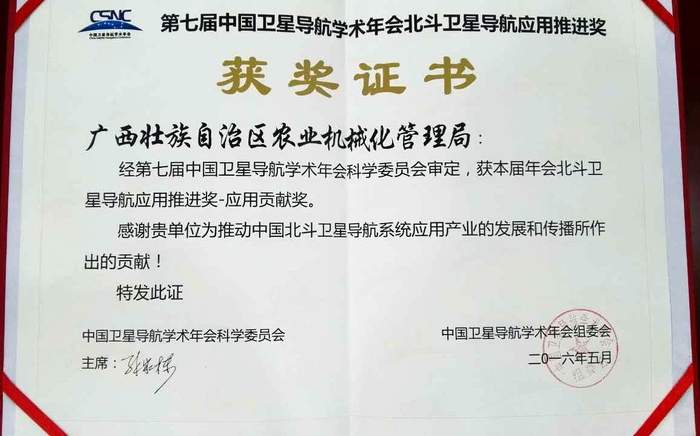 CSNC
中国卫星导航学术年会
第七届中国卫星导航学术年会北斗卫星导航应用推进奖
获奖证书
广西壮族自治区农业机械化管理局：
经第七届中国卫星导航学术年会科学委员会审定，获本届年会北斗卫
星导航应用推进奖-应用贡献奖。
感谢贵单位为推动中国北斗卫星导航系统应用产业的发展和传播所作
出的贡献！
特发此证
中国卫星导航学术年会科学委员会
主席：
中国卫星导航学术年会组委会
二〇一六年五月